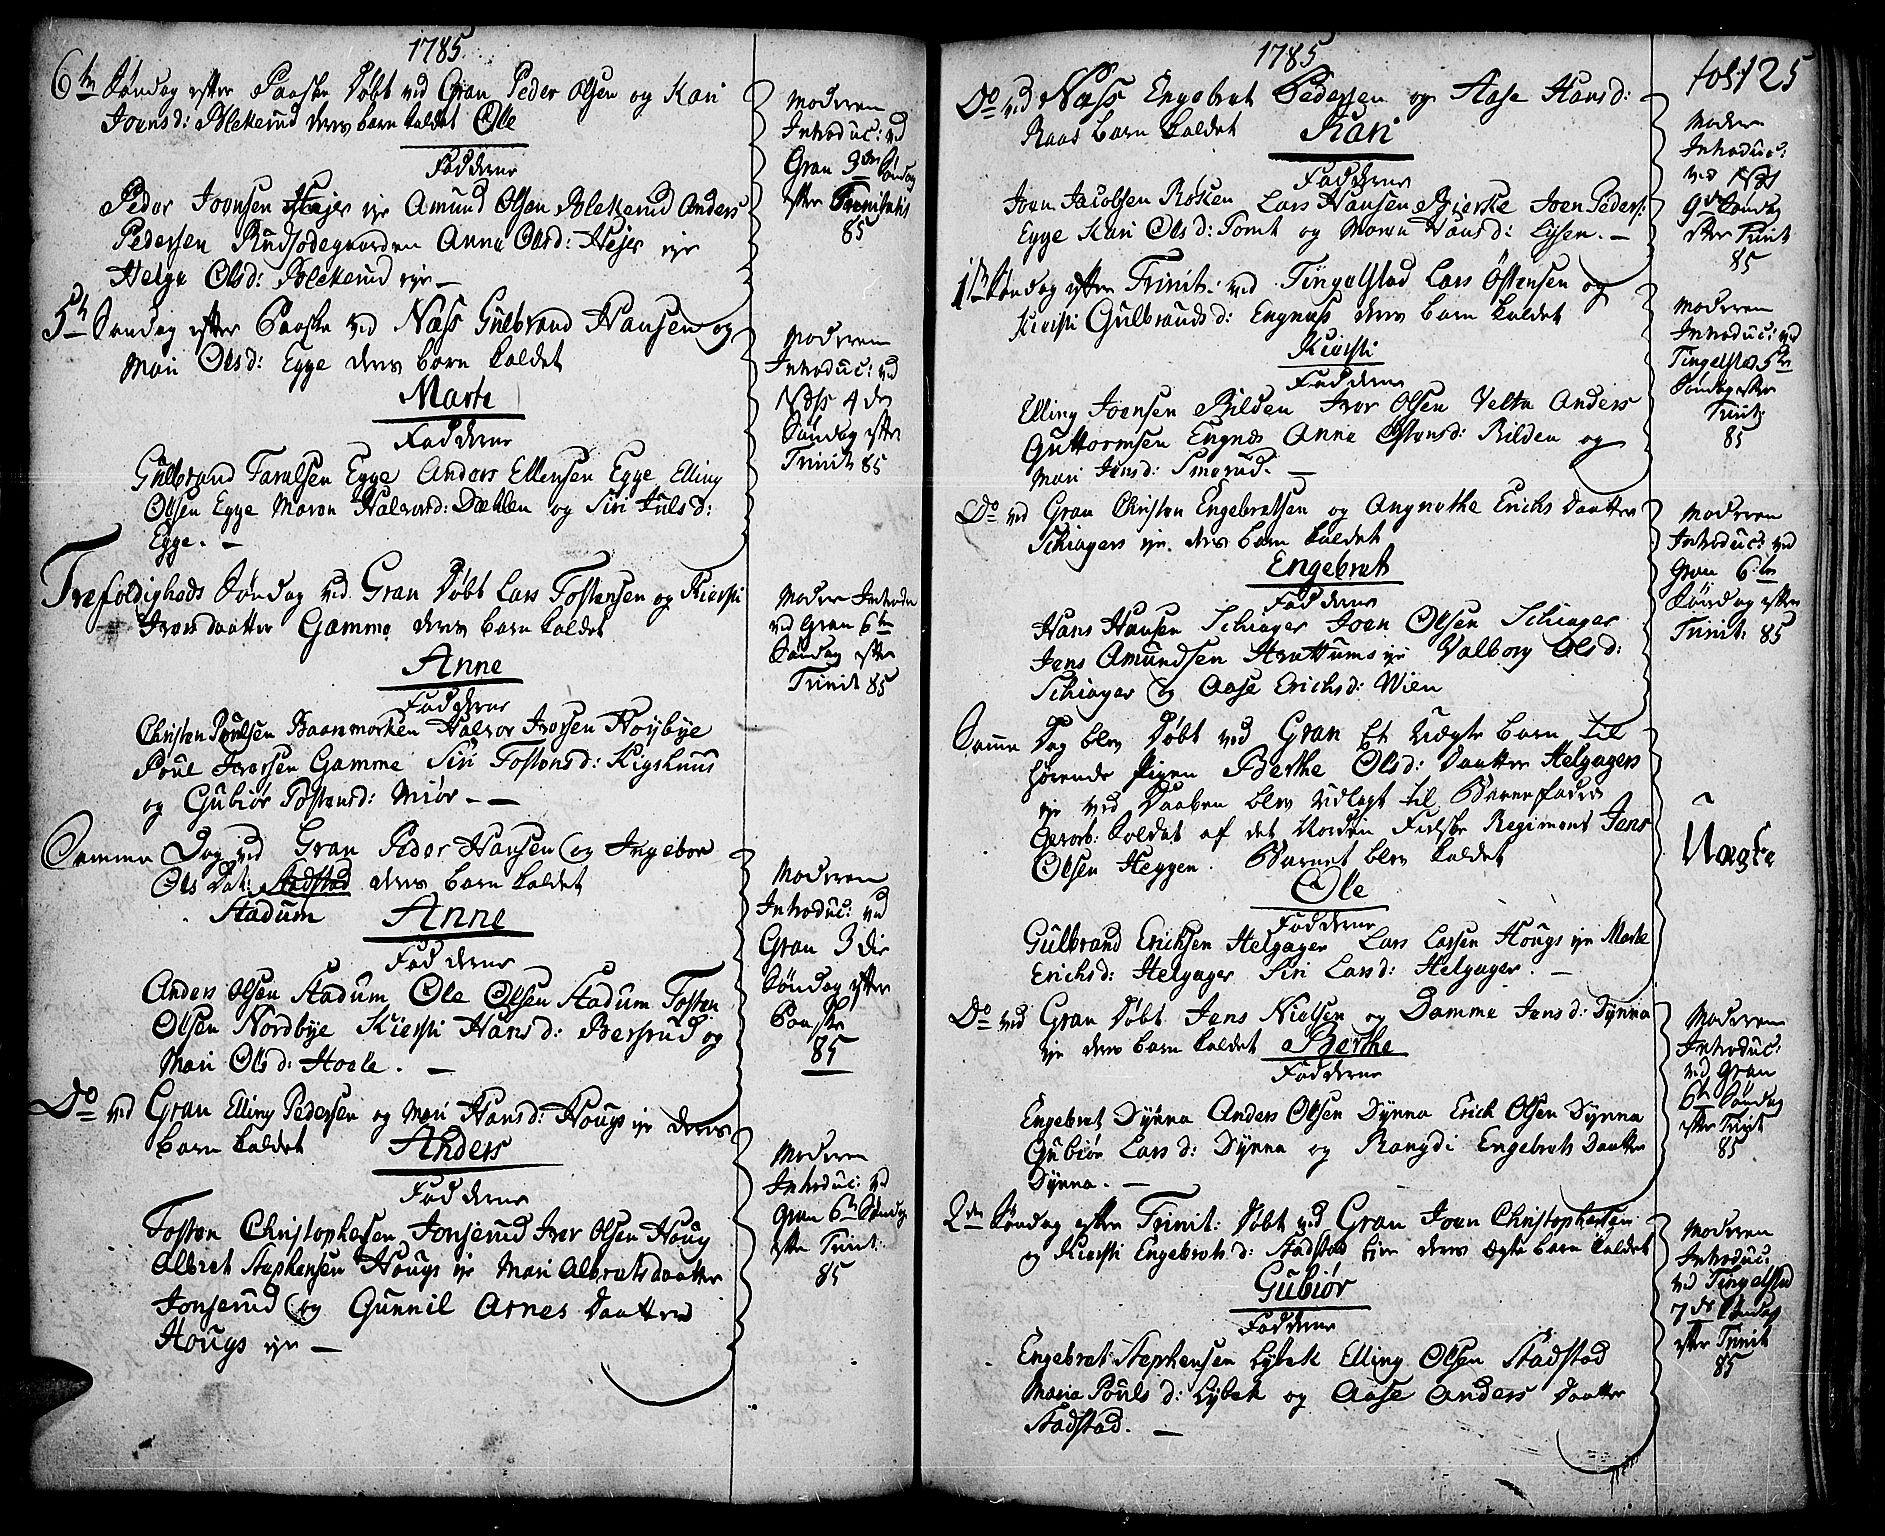 1785.
6te Søndag efter Paaske Døbt ved Gran Peder Olsen og Kari
Joensd: Blekerud deres barn kaldet Ole
Fadderne
Peder Joensen Hejer eje Amund Olsen Blekkerud Anders
Pedersen Rudsødegaarden Anne Olsd: Hejer eje
Helge Olsd: Blekerud eje –
Moderen
Introduc: ved
Gran 3die Søndag
efter Trinitatis
85
5te Søndag efter Paaske ved Næss Gulbrand Hansen og
Mari Olsd: Egge deres barn kaldet
Marte
Fadderne
Gulbrand Taralsen Egge Anders Ellensen Egge Elling
Olsen Egge Maren Halvorsd: Dæhlen og Siri Juulsd:
Egge. –
Moderen
Introduc: ved
Næss 4de
Søndag efter
Trinit 85
Trefoldigheds Søndag ved Gran Døbt Lars Tostensen og Kiersti
Iversdaatter Gamme deres barn kaldet
Anne
Fadderne
Christen Poulsen Baanmorken Halvor Iversen Høybye
Poul Iversen Gamme Siri Tostensd: Kigshuus
og Gubiør Tostensd: Miør. –
Moder Introdu
ved Gran 6te
Søndag efter
Trinit 85
Samme Dag ved Gran Peder Hansen og Ingebor
Ols Dat: Stadstad deres barn kaldet
Stadum
Anne
Fadderne
Anders Olsen Stadum Ole Olsen Stadum Tosten
Olsen Nordbye Kiersti Hansd: Bersrud og
Mari Olsd: Hoele. –
Moderen
Introduc: ved
Gran 3die
Søndag efter
Paaske
85
Do ved Gran Elling Pedersen og Mari Hansd: Hougs eje deres
barn kaldet Anders
Fadderne
Tosten Christophersen Jonserud Iver Olsen Houg
Albret Stephensen Hougs eje Mari Albretsdaatter
Jonserud og Gunnil Arnes Daatter
Hougs eje –
Moderen
Introduc: ved
Gran 6te Søndag
efter Trinit:
85
1785
fol: 125
Do ved Næss Engebret Pedersen og Aase Hansd:
Raas barn kaldet Kari
Fadderne
Joen Jacobsen Røken Lars Hansen Bierke Joen Peders:
Egge Kari Olsd: Tomt og Maren Hansd: Lysen. –
Moderen
Introduc:
ved Næs
9de Søndag
efter Trinit
85
1ste Søndag efter Trinit: ved Tingelstad Lars Østensen og
Kiersti Gulbrandsd: Engnæss deres barn kaldet
Kiersti
Fadderne
Elling Joensen Bilden Iver Olsen Velta Anders
Guttormsen Engnæs Anne Østensd: Bilden og
Mari Jensd: Smerud. –
Moderen
Introduc: ved
Tingelstad 5te
Søndag efter
Trinit
85
Do ved Gran Christen Engebretsen og Angnethe Erichs Daatter
Schiagers eje deres barn kaldet
Engebret
Fadderne
Hans Hansen Schiager Joen Olsen Schiager
Jens Amundsen Strattums eje Valborg Olsd:
Schiager og Aase Erichsd: Wien
Moderen
Introduc: ved
Gran 6te
Søndag efter
Trinit: 85
Samme Dag blev Døbt ved Gran Et Uægte barn til
hørende Pigen Berthe Olsd: Daatter Helgagers
eje ved Daaben blev udlagt til Barnefader
Gevorb: Soldat af det Nordenfieldske Regiment Jens
Olsen Heggen. Barnet blev kaldet
Ole
Fadderne
Gulbrand Erichsen Helgager Lars Larsen Hougs eje Marte
Erichsd: Helgager Siri Larsd: Helgager. –
Uægte
Do ved Gran Døbt Jens Nielsen og Damme Jensd: Dynna
eje deres barn kaldet Berthe
Fadderne
Engebret Dynna Anders Olsen Dynna Erich Olsen Dynna
Gubiør Larsd: Dynna og Rangdi Engebrets Daatter
Dynna. –
Moderen
Introduc:
ved Gran
6te Søndag
efter Trinit
85
2den Søndag efter Trinit: Døbt ved Gran Joen Christophersen
og Kiersti Engebretsd: Stadstad Eier deres ægte barn kaldet
Gubiør
Fadderne
Engebret Stephensen Lybek Elling Olsen Stadstad
Maria Pouls d: Lybek og Aase Anders Daatter
Stadstad. –
Moderen
Introduc:
ved Tingelstad
7de Søndag
efter Trinit
85